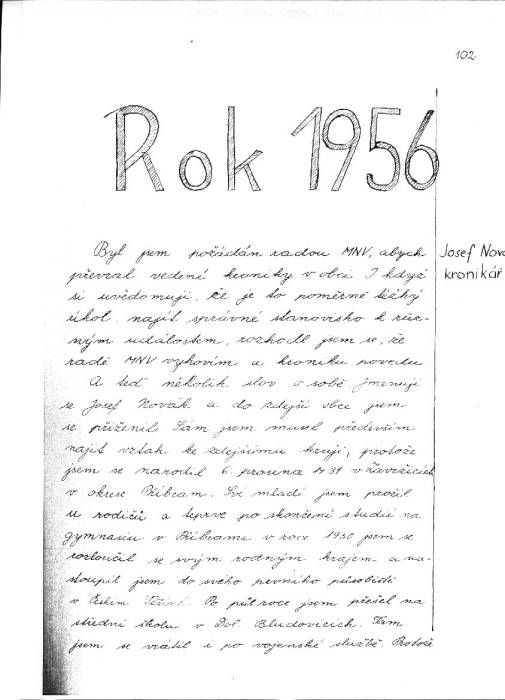 102
Rok 1956
Josef Nová
kronikář
Byl jsem požádán radou MNV, abych
převzal vedení kroniky v obci. I když
si uvědomuji, že je to poměrně těžký
úkol, najít správné stanovisko k růz-
ným událostem, rozhodl jsem se, že
radě MNV vyhovím a kroniku povedu.
A teď několik slov o sobě jmenuji
se Josef Novák a do zdejší obce jsem
se přiženil. Sám jsem musel především
najít vztah ke zdejšímu kraji, protože
jsem se narodil 6. prosince 1931 v
v okrese Příbram. Své mládí jsem prožil
u rodičů a teprve po skončení studií na
gymnasiu v Příbrami v roce 1950 jsem se
rozloučil se svým rodným krajem a na-
stoupil jsem do svého prvního působiště
v Českém Těšíně. Po půl roce jsem přešel na
střední školu v Dol. Bludovicích. Tam
jsem se vrátil i po vojenské službě. Protože